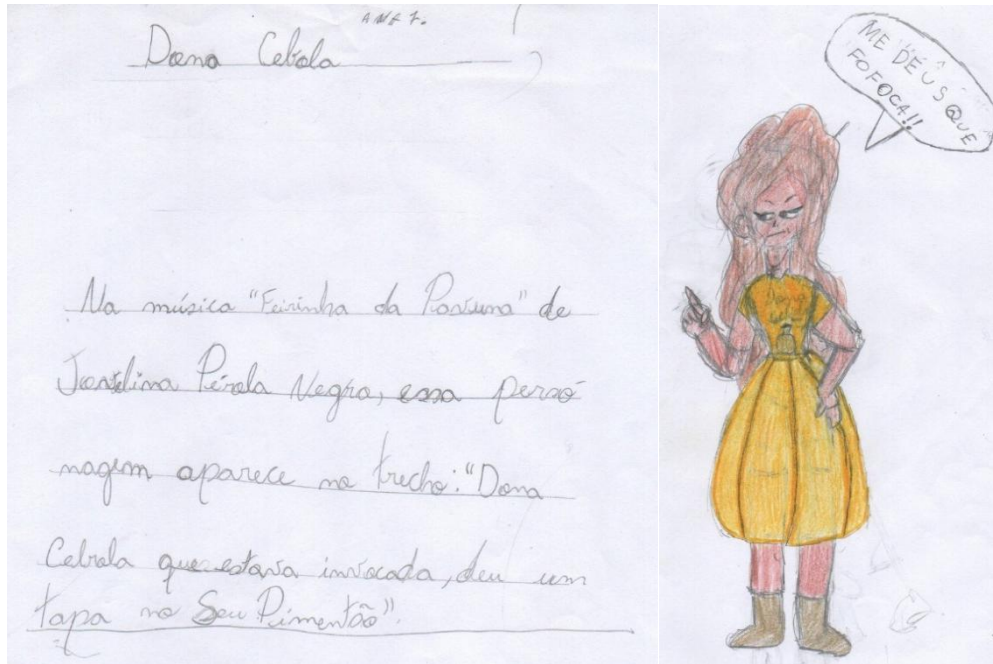 ANE 7.
Dona Cebola
Na música "Feirinha da Pavuna" de
Jovelina Pérola Negra, essa perso
nagem aparece no trecho: "Dona
Cebola que estava invocada, deu um
tapa no Seu Pimentão".
ME DEÛS QUE
FOFOCA!!